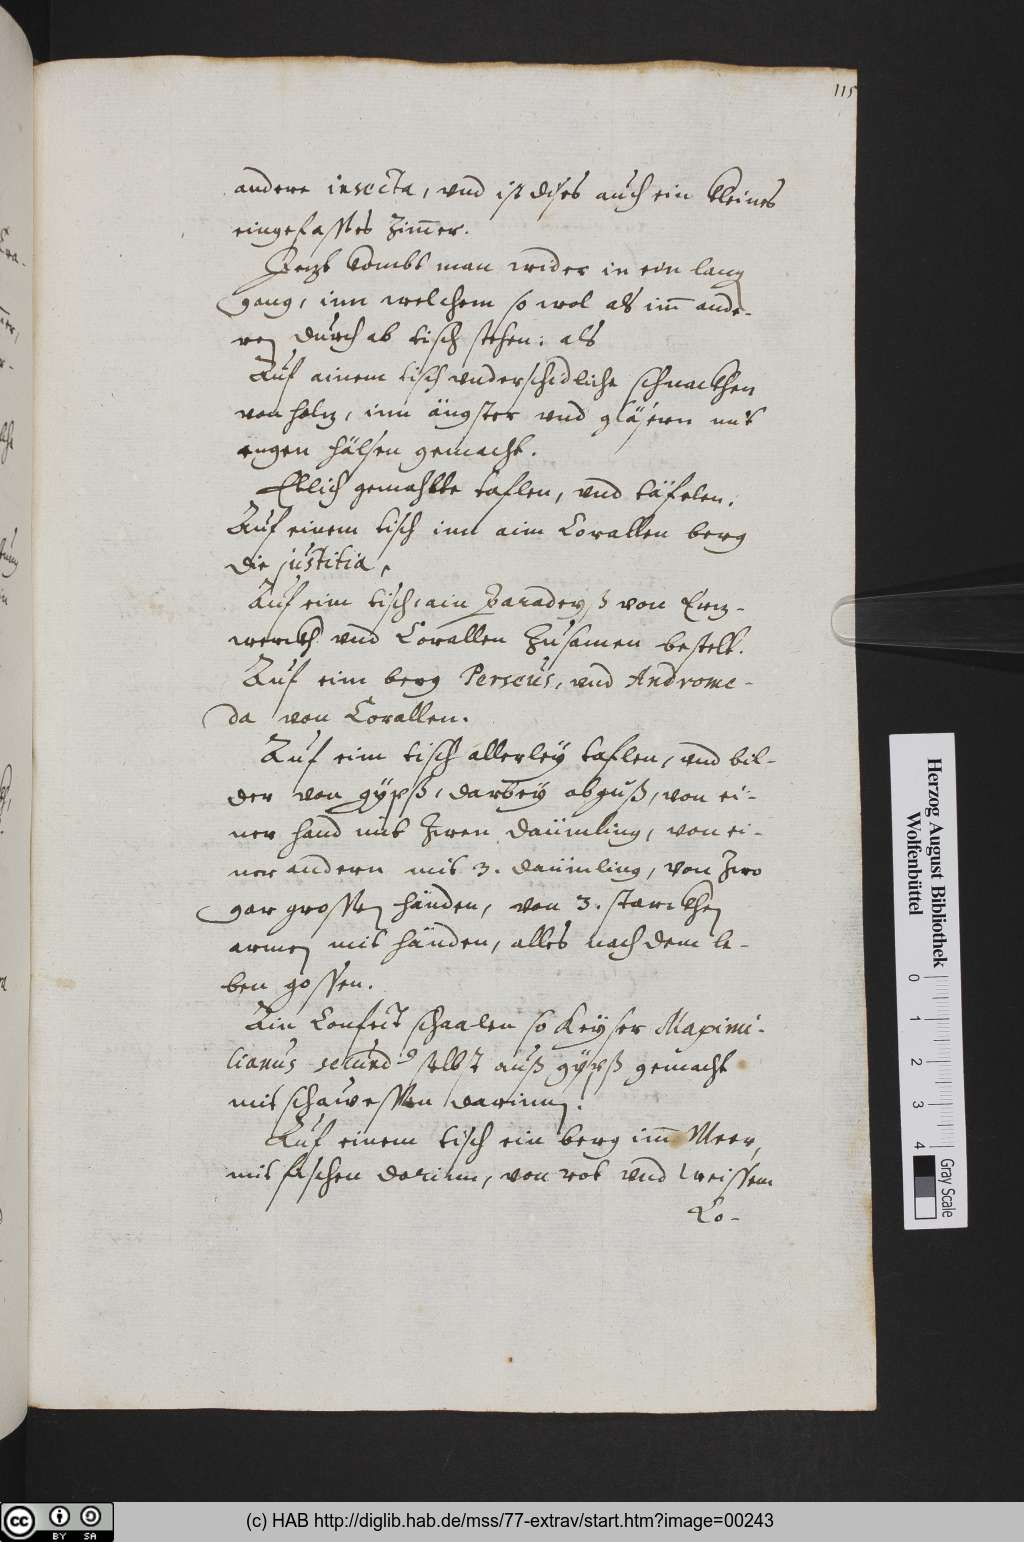 115
andere insecta, vnd ist dises auch ein kleines
eingefasstes Zim̅er.
Jezt kombt man wider in ein lang
gang, inn welchem so wol als im̅ ande-
ren durch ab tisch stehen: als
Auf ainem tisch vnderschidliche schnackhen
von holz, inn ängster vnd gläsern mit
engen hälsen gemacht.
Etlich gemahlte taflen, vnd täfelen.
Auf einem tisch inn aim Corallen berg
die justitia,
Auf eim tisch, ain Paradeyß von Erz-
werckh vnd Corallen zusamen bestelt.
Auf eim berg Perseus, vnd Androme-
da von Corallen.
Auf eim tisch allerleÿ taflen, vnd bil-
der von gÿpß, darbeÿ abguß, von ei-
ner hand mit zwen daümling, von ei-
ner andern mit 3. daümling, von zwo
gar grossen händen, von 3. starckhen
armen mit händen, alles nach dem le-
ben gossen.
Ain Confect schaalen so Keÿser Maximi-
lianus secund9 selbst auß gÿpß gemacht
mit schawessen darinnen.
Auf einem tisch ein berg im̅ Meer,
mit fischen darinn, von rot vnd weissem
Co-
Herzog August Bibliothek
Wolfenbüttel
0 1 2 3 4
Gray Scale
cc BY SA
(c) HAB http://diglib.hab.de/mss/77-extrav/start.htm?image=00243